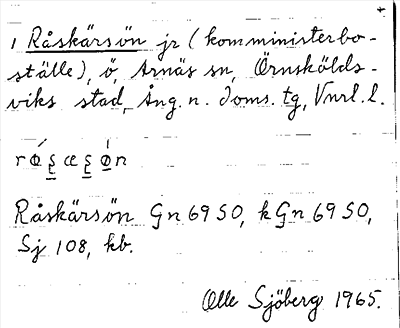 1 Råskärsön jr (komministerbo-
ställe), ö, Arnäs sn, Örnskölds-
viks stad, Ång. n. doms. tg, Vnrl. l.
Råskärsön Gn 6950, k Gn 6950,
Sj 108, kb.
Olle Sjöberg 1965.